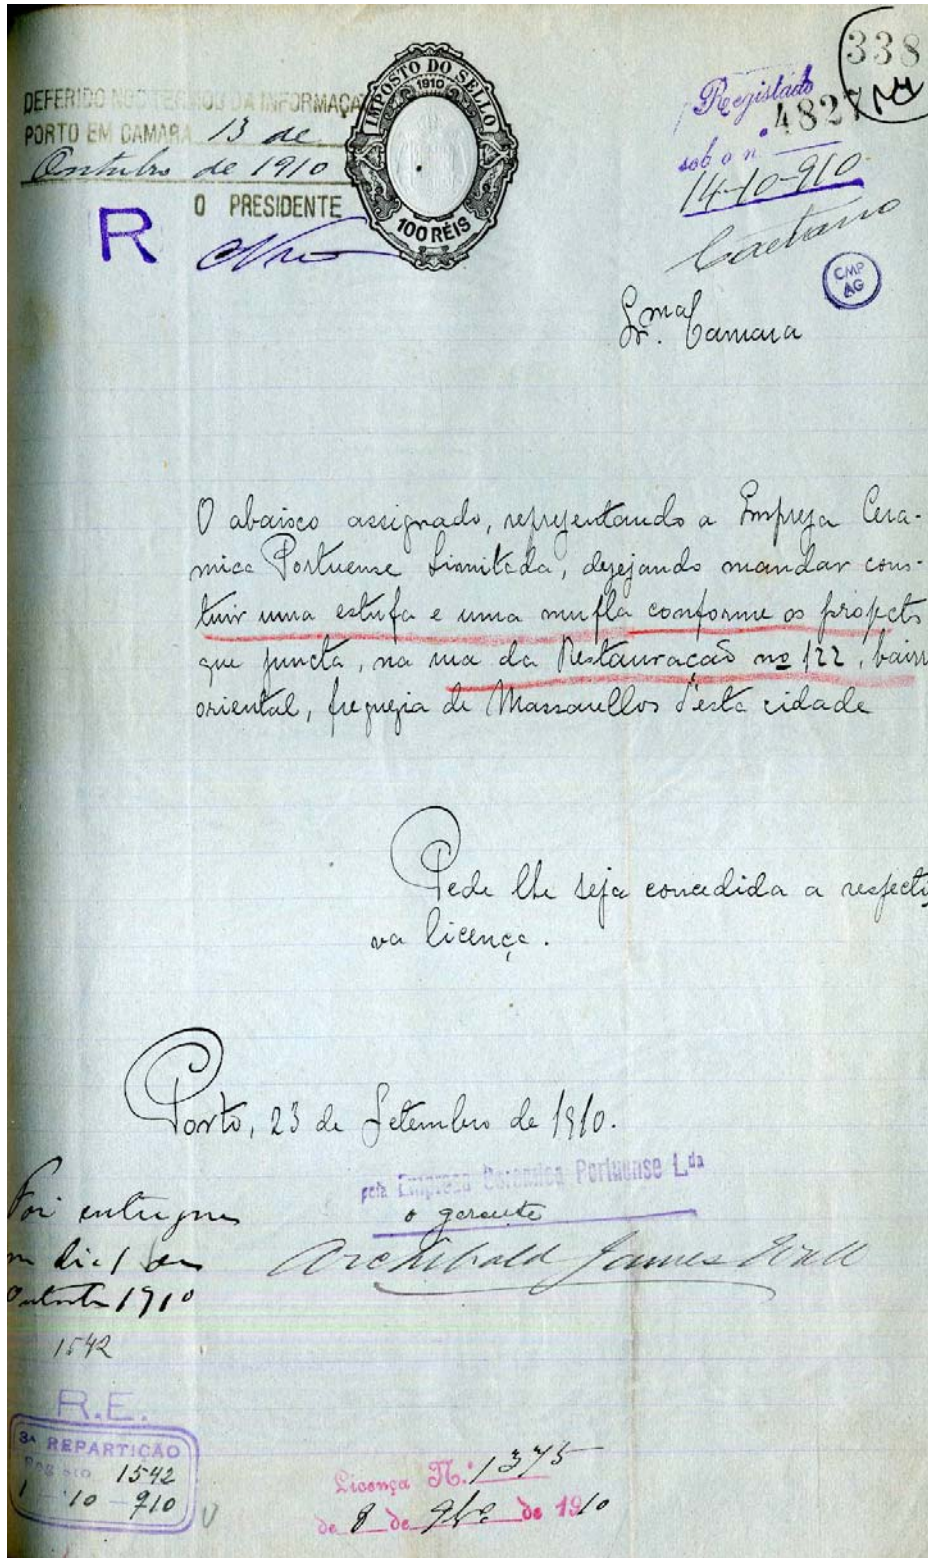 338
DEFERIDO NOS TERMOS DA INFORMAÇÃ
PORTO EM CAMARA 13 de
Outubro de 1910
O PRESIDENTE
R
IMPOSTO DO SELLO
1910
100 RÉIS
Registado
4827
sob o n.º
14-10-910
Caetano
CMP
AG
Camara
O abaixo assignado, representando a Empreza Cera-
mica Portuense Limitada, dezejando mandar cons-
truir uma estufa e uma mufla conforme os projecto
que juncta, na rua da Restauração nº 122, bairro
oriental, freguezia de Massarellos d'esta cidade
Pede lhe seja concedida a respecti
va licença.
Porto, 23 de Setembro de 1910.
pela Empreza Ceramica Portuense L.da
o gerente
Archibald James Wall
Foi entregue
Outubro 1910
1542
R.E.
3ª REPARTIÇÃO
Registo 1542
1-10-910
Licença N.º 1375
de 8 de 9bro de 1910